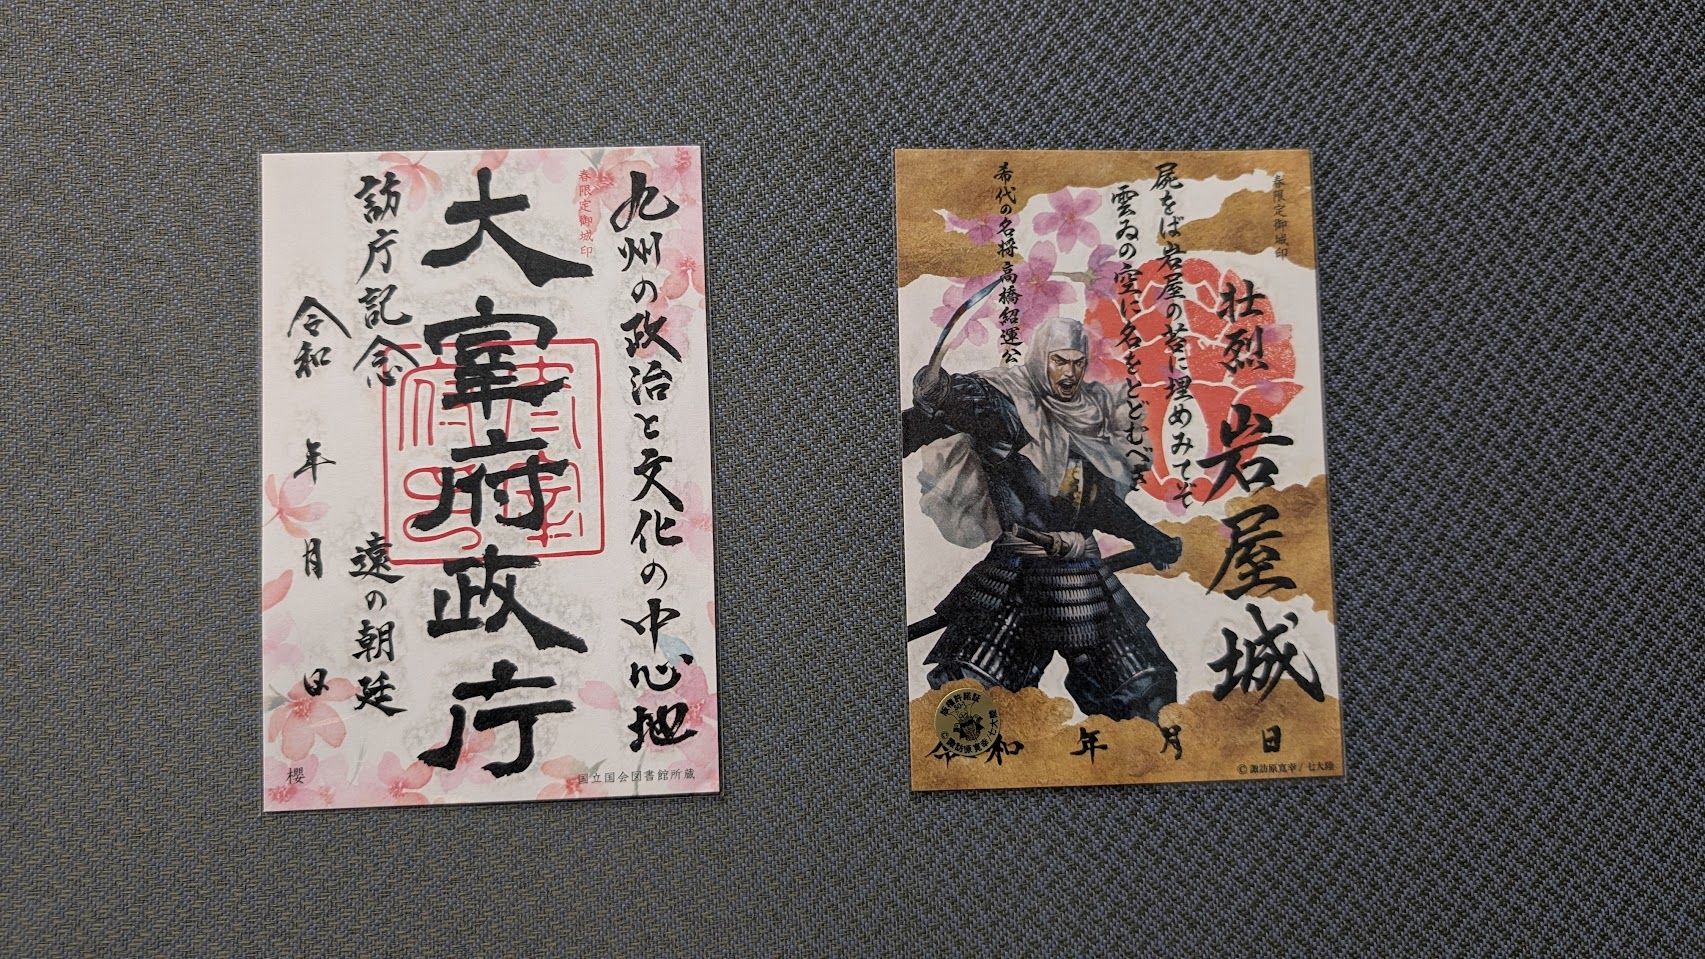 九州の政治と文化の中心地
春限定御城印
大宰府政庁
訪庁記念 遠の朝廷
令和 年 月 日
櫻
国立国会図書館所蔵
春限定御城印
壮烈 岩屋城
屍をば岩屋の苔に埋めみてぞ
雲ゐの空に名をとどむべき
希代の名将 高橋紹運公
令和 年 月 日
版権許諾証
©諏訪原寛幸/七大陸
©諏訪原寛幸/七大陸